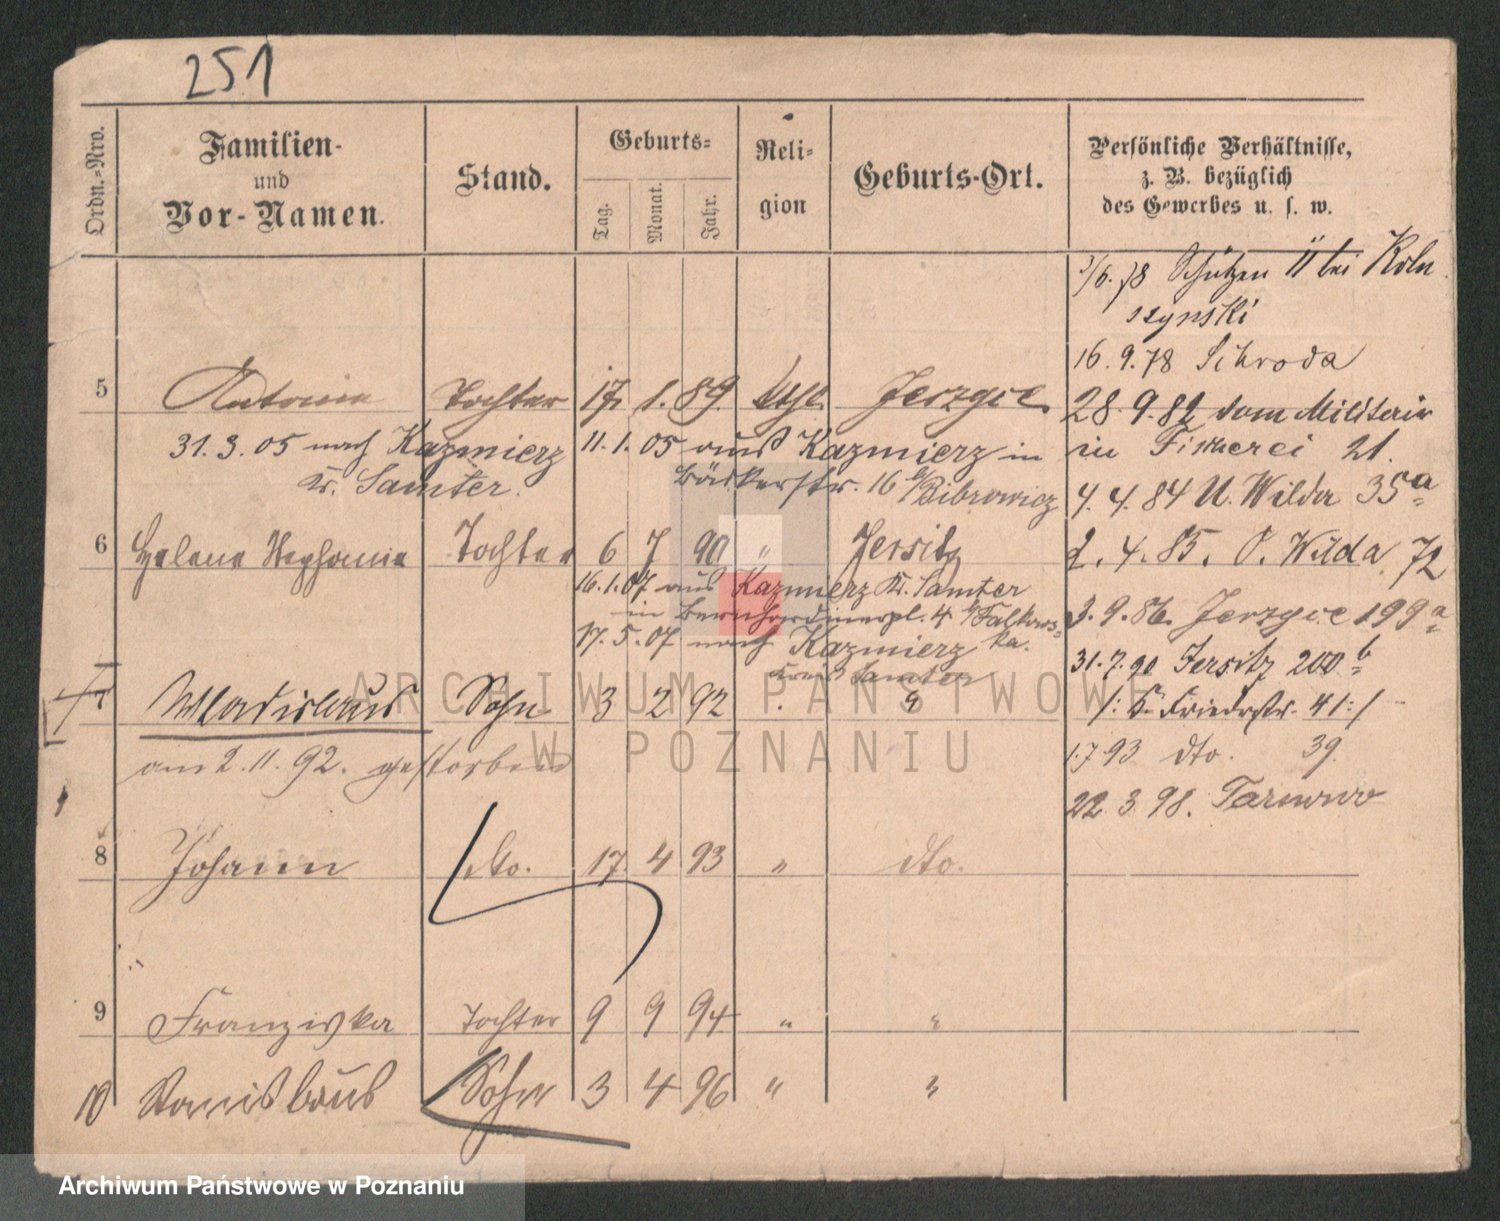 251
Ordn.-Nro.
Familien-
und
Vor-Namen.
Stand.
Geburts-
Tag.
Monat.
Jahr.
Reli-
gion
Geburts-Ort.
Persönliche Verhältnisse,
z. B. bezüglich
des Gewerbes u. s. w.
3/6.78 Schützen 11 bei Koln
szynski
16.9.78 Schroda
5 Antonia Tochter 17. 1. 89. kath. Jerzyce
28.9.82 vom Militair
31.3.05 nach Kazmierz
Kr. Samter.
11.1.05 aus Kazmierz in
Bäckerstr. 16 b/Bibrowicz
in Fischerei 21.
4.4.84 U. Wilda 35a
6 Helene Stephanie Tochter 6 7 90 " Jersitz
2.4.85. O. Wilda 72
16.1.07 aus Kazmierz Kr. Samter
in Bernhardinerpl. 4 b/Falkows-
ka.
17.5.07 nach Kazmierz
Kreis Samter
3.9.86. Jerzyce 199a
31.7.90 Jersitz 200b
7 Wladislaus Sohn 3 2 92 "
/: K. Friedrstr. 41 :/
am 2.11.92. gestorben
1.7.93 dto. 39.
22.3.98. Tarnowo
8 Johann dto. 17. 4 93 " dto.
9 Franziska Tochter 9 9 94 " "
10 Stanislaus Sohn 3 4 96 " "
ARCHIWUM PAŃSTWOWE
W POZNANIU
Archiwum Państwowe w Poznaniu